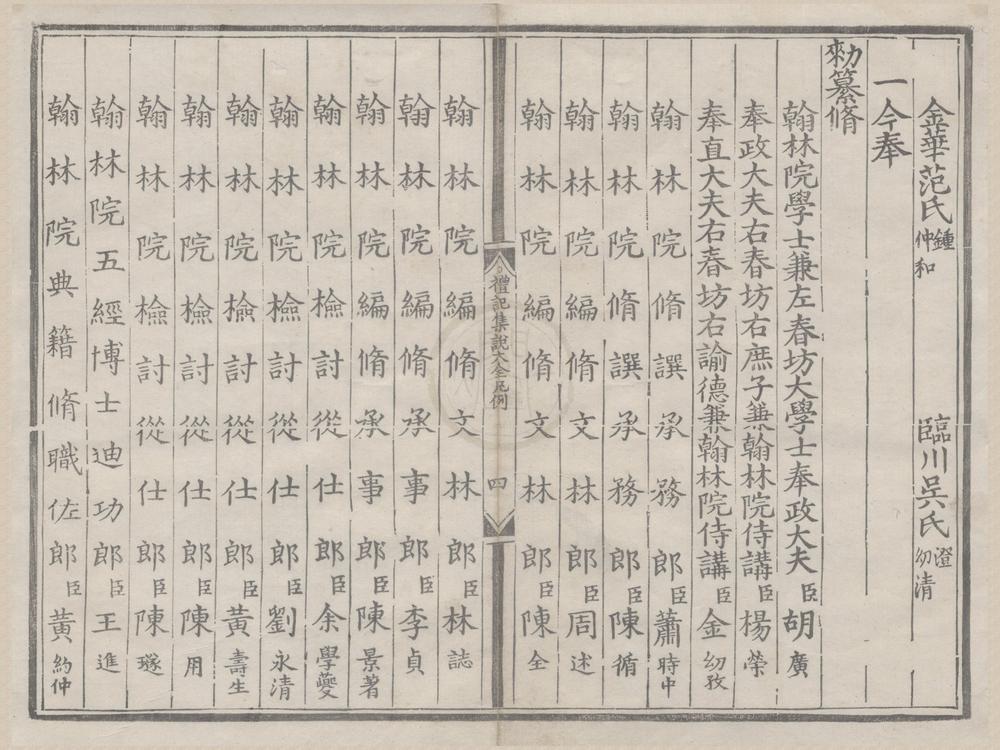 金華范氏鍾仲和 臨川吳氏澄幼清
一今奉
勑纂脩
翰林院學士兼左春坊大學士奉政大夫臣胡廣
奉政大夫右春坊右庶子兼翰林院侍講臣楊榮
奉直大夫右春坊右諭德兼翰林院侍講臣金幼孜
翰林院脩譔承務郎臣蕭時中
翰林院脩譔承務郎臣陳循
翰林院編脩文林郎臣周述
翰林院編脩文林郎臣陳全
禮記集說大全凡例 四
翰林院編脩文林郎臣林誌
翰林院編脩承事郎臣李貞
翰林院編脩承事郎臣陳景著
翰林院檢討從仕郎臣余學夔
翰林院檢討從仕郎臣劉永清
翰林院檢討從仕郎臣黃壽生
翰林院檢討從仕郎臣陳用
翰林院檢討從仕郎臣陳璲
翰林院五經博士迪功郎臣王進
翰林院典籍脩職佐郎臣黃約仲